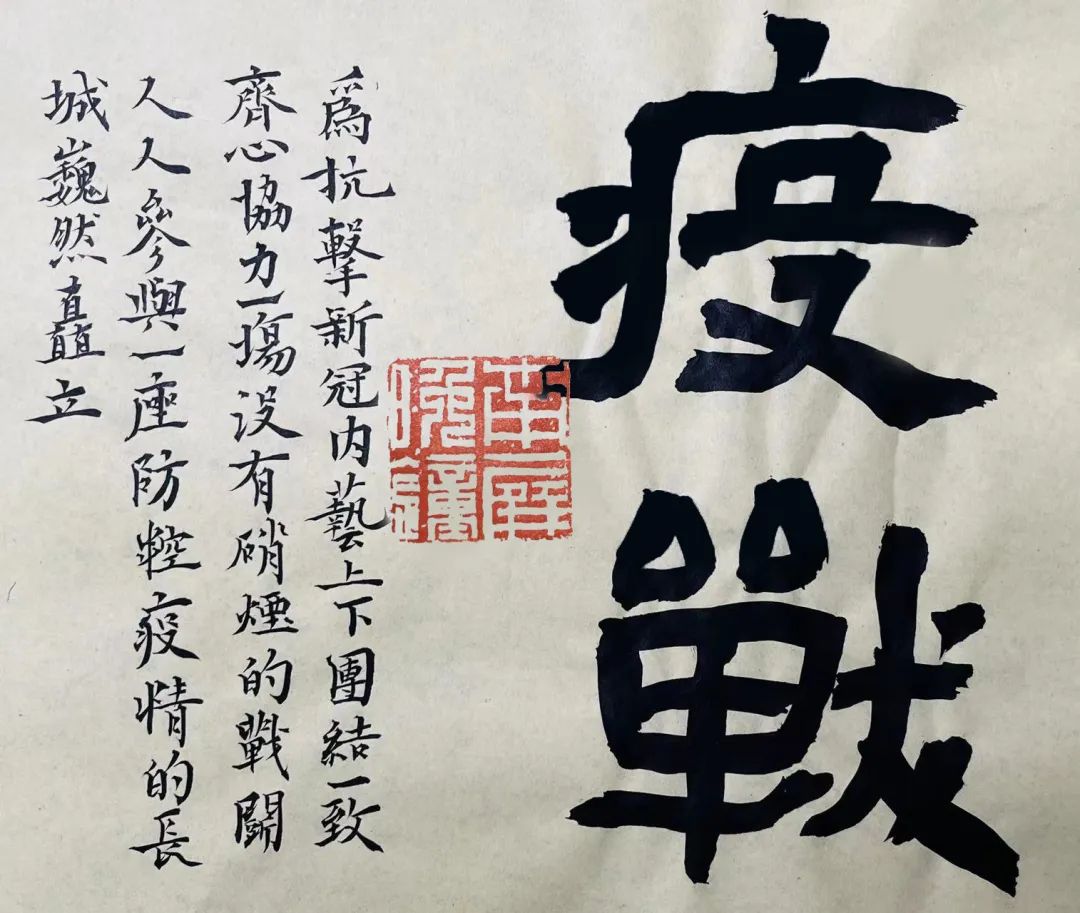 疫戰
爲抗擊新冠内藝上下團結一致
齊心協力一場没有硝煙的戰鬪
人人參與一座防控疫情的長
城巍然矗立
南屏
晚鐘